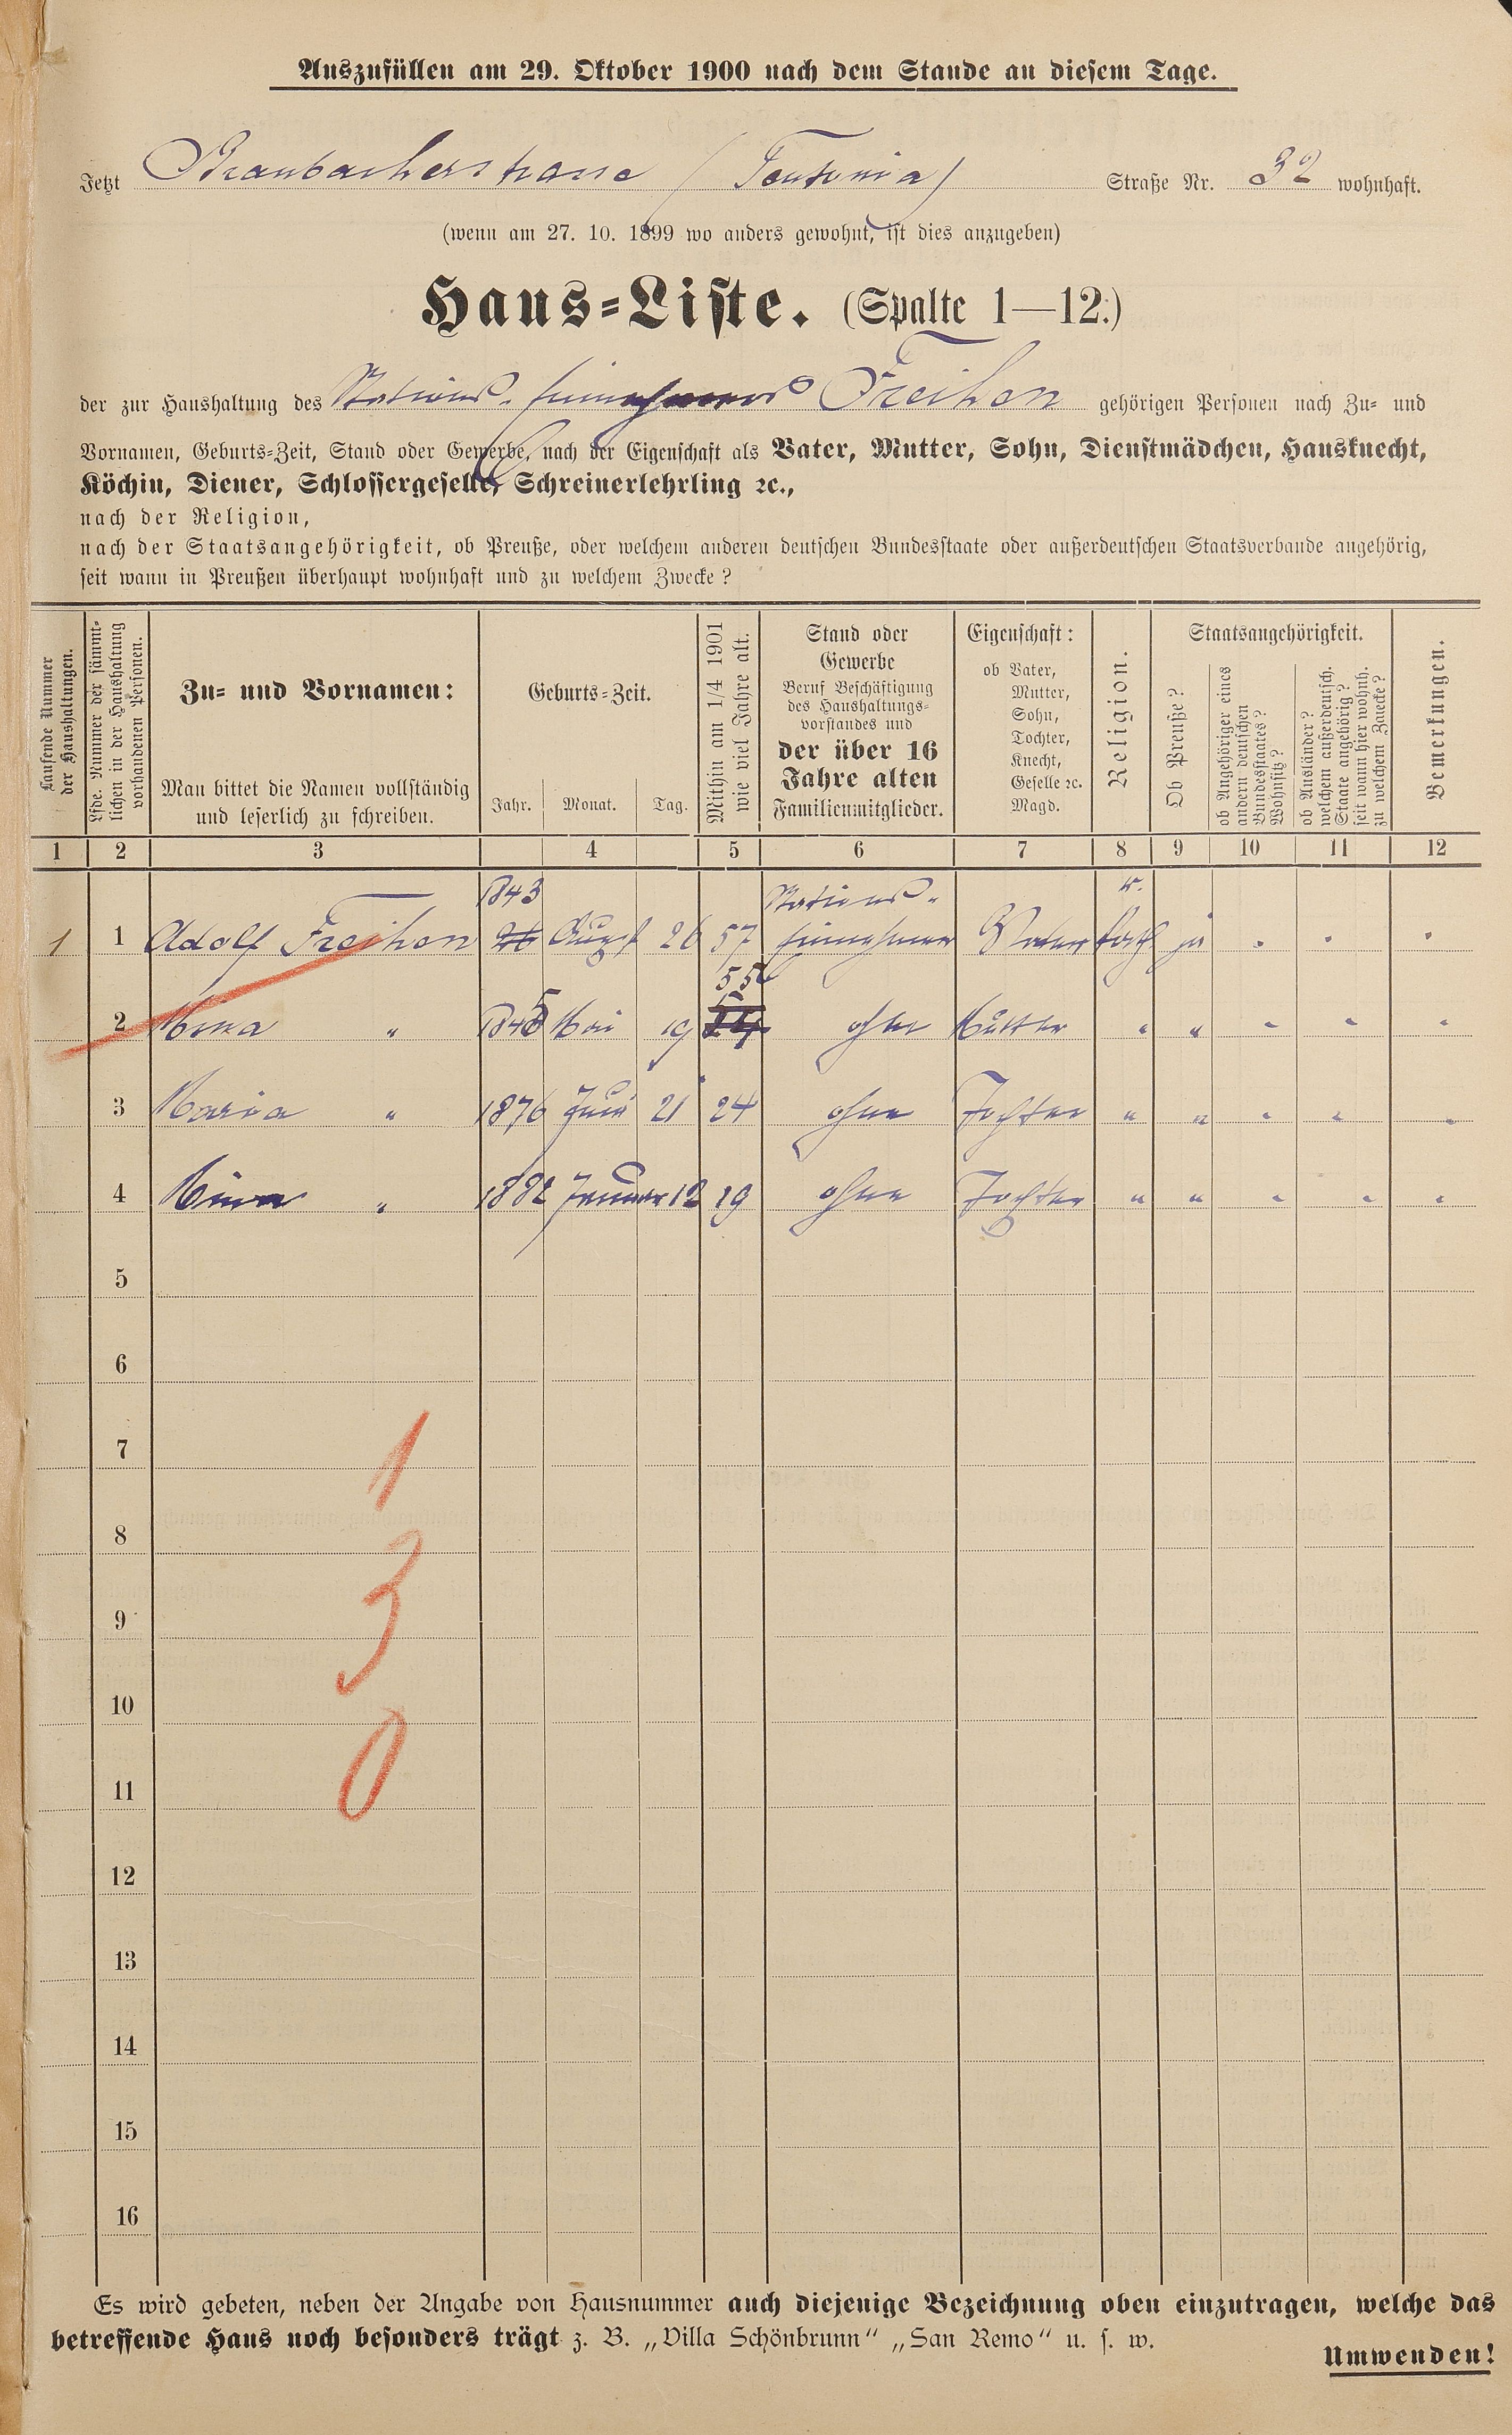 Auszufüllen am 29. Oktober 1900 nach dem Stande an diesem Tage.
Jetzt Braubacherstrasse (Teutonia) Straße Nr. 32 wohnhaft.
(wenn am 27. 10. 1899 wo anders gewohnt, ist dies anzugeben)
Haus-Liste. (Spalte 1—12.)
der zur Haushaltung des Stations-Einnehmers Freihen gehörigen Personen nach Zu- und
Vornamen, Geburts-Zeit, Stand oder Gewerbe, nach der Eigenschaft als Vater, Mutter, Sohn, Dienstmädchen, Hausknecht,
Köchin, Diener, Schlossergeselle, Schreinerlehrling ꝛc.,
nach der Religion,
nach der Staatsangehörigkeit, ob Preuße, oder welchem anderen deutschen Bundesstaate oder außerdeutschen Staatsverbande angehörig,
seit wann in Preußen überhaupt wohnhaft und zu welchem Zwecke?
Laufende Nummer
der Haushaltungen.
Lfde. Nummer der sämmt-
lichen in der Haushaltung
vorhandenen Personen.
Zu- und Vornamen:
Man bittet die Namen vollständig
und leserlich zu schreiben.
Geburts-Zeit.
Jahr. Monat. Tag.
Mithin am 1/4 1901
wie viel Jahre alt.
Stand oder
Gewerbe
Beruf Beschäftigung
des Haushaltungs-
vorstandes und
der über 16
Jahre alten
Familienmitglieder.
Eigenschaft:
ob Vater,
Mutter,
Sohn,
Tochter,
Knecht,
Geselle ꝛc.
Magd.
Religion.
Staatsangehörigkeit.
Ob Preuße?
ob Angehöriger eines
andern deutschen
Bundesstaates?
Wohnsitz?
ob Ausländer?
welchem außerdeutsch.
Staate angehörig?
seit wann hier wohnh.
zu welchem Zwecke?
Bemerkungen.
1 2 3 4 5 6 7 8 9 10 11 12
1843 Stations- k.
1 1 Adolf Freihen 26 August 26 57 Einnehmer Vater kath ja
55
2 Mina " 1845 Mai 19 54 ohne Mutter " " " " "
3 Maria " 1876 Juni 21 24 ohne Tochter " " " " "
4 Mina " 1882 Januar 12 19 ohne Tochter " " " " "
5
6
7
1
8
3
9
10
0
11
12
13
14
15
16
Es wird gebeten, neben der Angabe von Hausnummer auch diejenige Bezeichnung oben einzutragen, welche das
betreffende Haus noch besonders trägt z. B. „Villa Schönbrunn“ „San Remo“ u. s. w.
Umwenden!